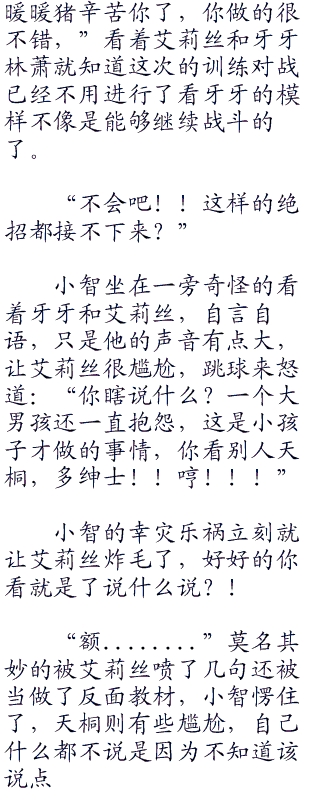 暖暖猪辛苦你了，你做的很
不错，”看着艾莉丝和牙牙
林萧就知道这次的训练对战
已经不用进行了看牙牙的模
样不像是能够继续战斗的
了。
“不会吧！！这样的绝
招都接不下来？”
小智坐在一旁奇怪的看
着牙牙和艾莉丝，自言自
语，只是他的声音有点大，
让艾莉丝很尴尬，跳球来怒
道：“你瞎说什么？一个大
男孩还一直抱怨，这是小孩
子才做的事情，你看别人天
桐，多绅士！！哼！！！”
小智的幸灾乐祸立刻就
让艾莉丝炸毛了，好好的你
看就是了说什么说？！
“额........”莫名其
妙的被艾莉丝喷了几句还被
当做了反面教材，小智愣住
了，天桐则有些尴尬，自己
什么都不说是因为不知道该
说点